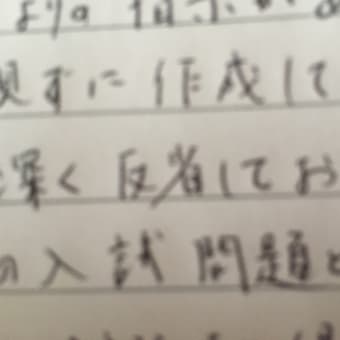 よりの指示が
ずに作成して
深く反省してお
の入試問題と